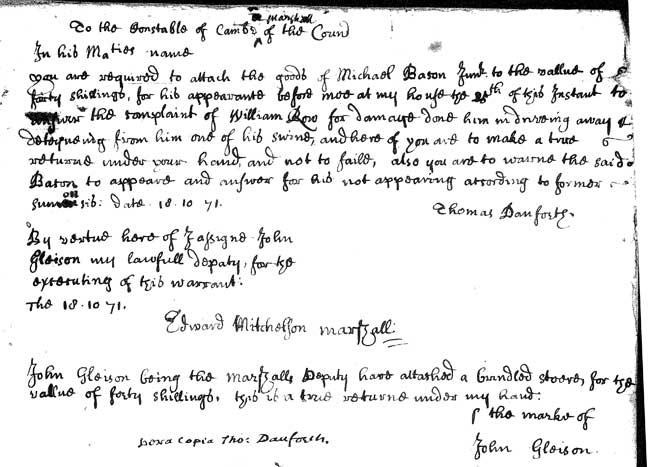 or Marshall
To the Constable of Camb: ^ of the Count
In his Maties name
you are required to attach the goods of Michael Bacon Junr. to the vallue of
forty shillings, for his appearante before mee at my house the 28th of this Instant to
answer the complaint of William Row for damage done him in driveing away &
deteyneing from him one of his swine, and here of you are to make a true
returne under your hand, and not to faile, also you are to warne the said
Bacon to appeare and answer for his not appearing according to former
summonsib: date. 18. 10 71.
Thomas Danforth.
By vertue here of I assigne John
Gleison my lawfull deputy, for the
executing of this warrant:
The 18. 10 71.
Edward Mitchelson marshall:
John Gleison being the marshalls Deputy have attached a brindled steere, for the
vallue of forty shillings, this is a true returne under my hand:
the marke of
John Gleison.
vera copia Tho: Danforth.